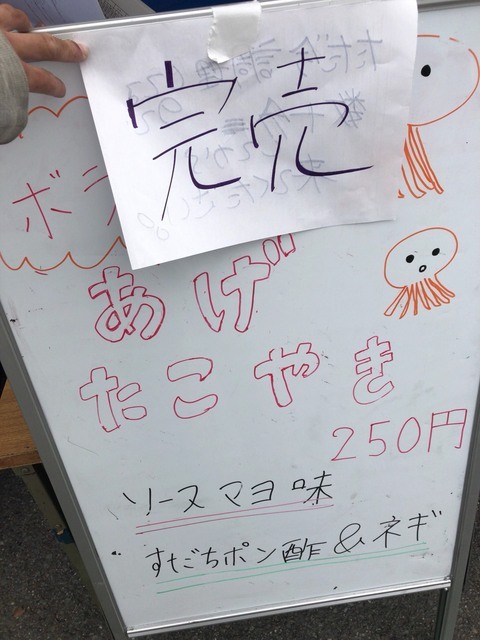 完売
ボラ
あげ
たこやき
250円
ソースマヨ味
すだちポン酢&ネギ